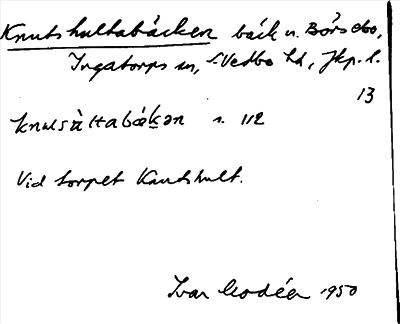 Knutshultabäcken bäck n. Börsebo,
Ingatorps sn, S. Vedbo hd, Jkp. l.
13
knusàltabækən s. 112
Vid torpet Knutshult.
Ivar Modéer 1950